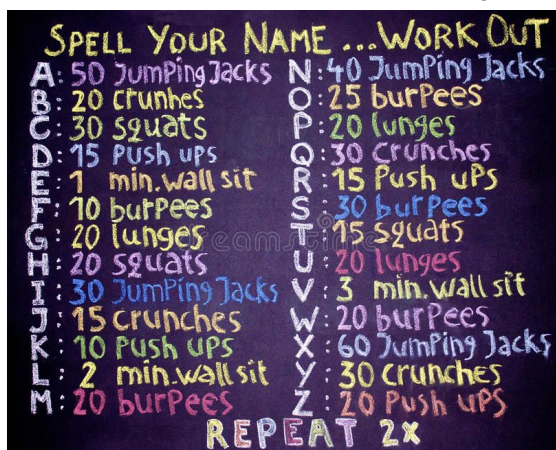 SPELL YOUR NAME ... WORK OUT
A: 50 JumPing Jacks
B: 20 crunhes
C: 30 squats
D: 15 Push ups
E: 1 min.wall sit
F: 10 burpees
G: 20 lunges
H: 20 squats
I: 30 JumPing Jacks
J: 15 crunches
K: 10 Push ups
L: 2 min.wall sit
M: 20 burpees
N: 40 JumPing Jacks
O: 25 burpees
P: 20 lunges
Q: 30 crunches
R: 15 Push uPs
S: 30 burpees
T: 15 squats
U: 20 lunges
V: 3 min.wall sit
W: 20 burpees
X: 60 JumPing Jacks
Y: 30 crunches
Z: 20 Push uPs
REPEAT 2X